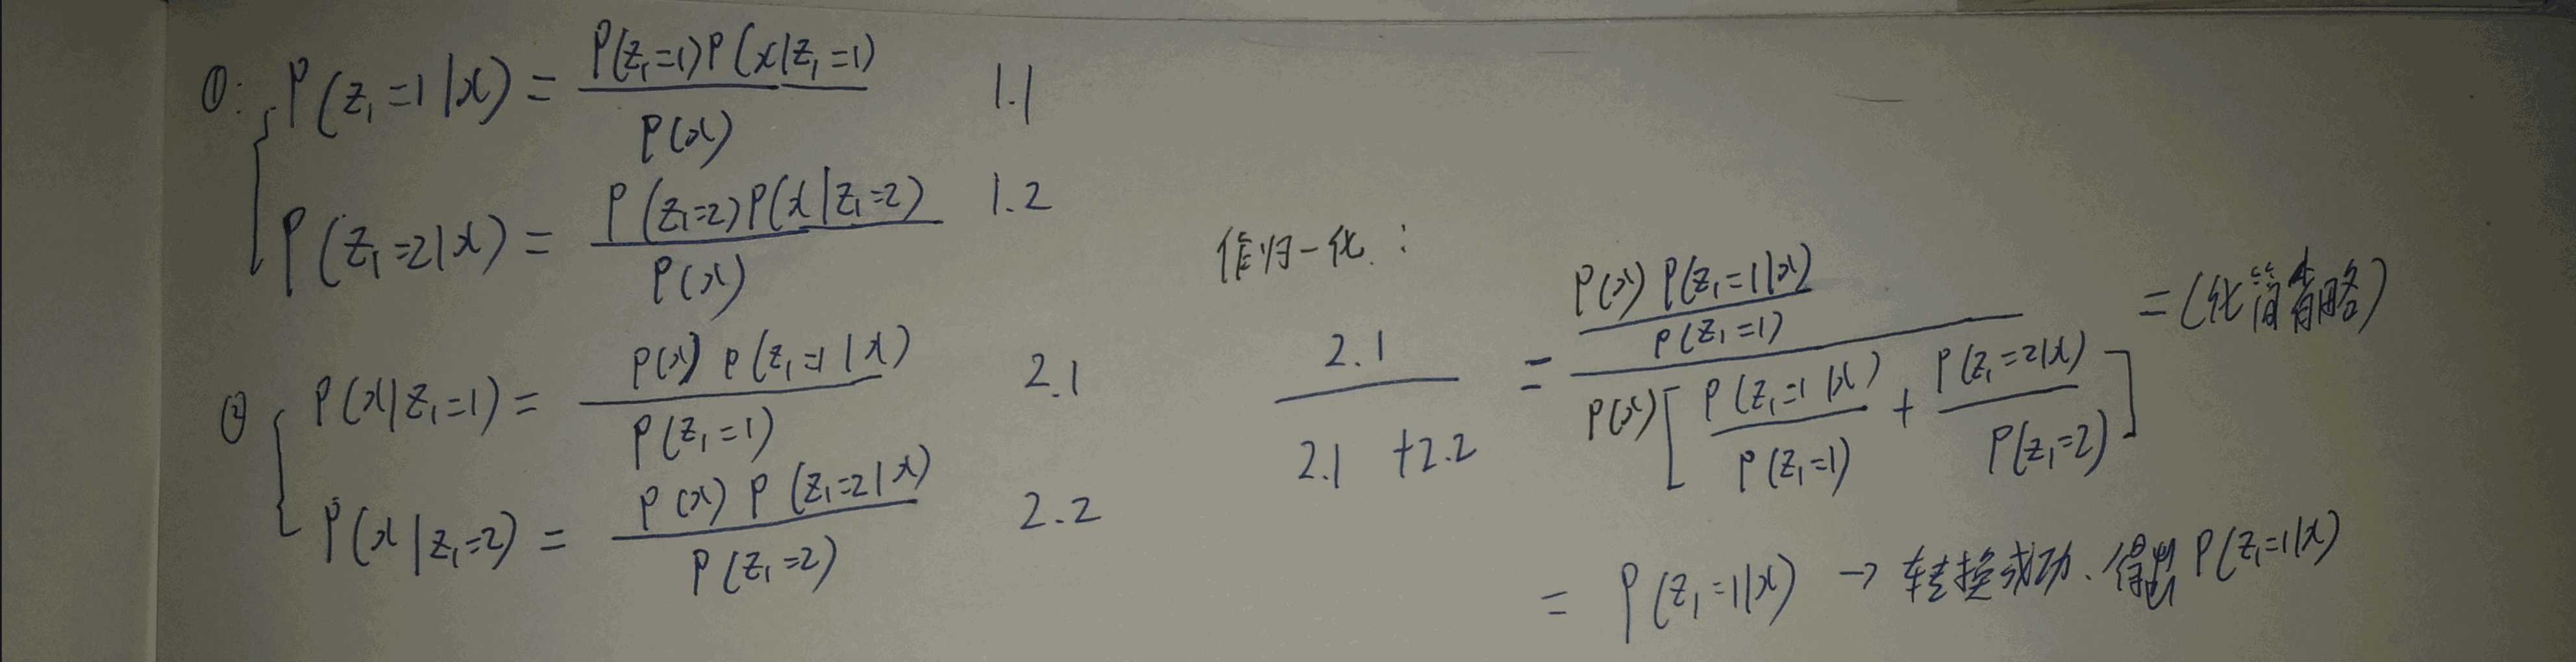 ①: P(z₁=1|x) = P(z₁=1)P(x|z₁=1) / P(x) 1.1
P(z₁=2|x) = P(z₁=2)P(x|z₁=2) / P(x) 1.2
② P(x|z₁=1) = P(x) P(z₁=1|x) / P(z₁=1) 2.1
P(x|z₁=2) = P(x) P(z₁=2|x) / P(z₁=2) 2.2
作归一化:
2.1 / 2.1 + 2.2 = P(x) P(z₁=1|x) / P(z₁=1) / P(x)[P(z₁=1|x) / P(z₁=1) + P(z₁=2|x) / P(z₁=2)] = (化简省略)
= P(z₁=1|x) → 转换成功、得出 P(z₁=1|x)